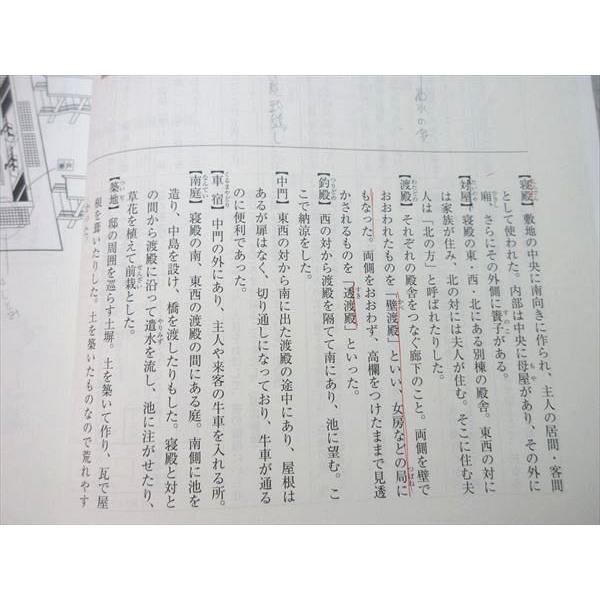 【寝殿】敷地の中央に南向きに作られ、主人の居間・客間
として使われた。内部は中央に母屋があり、その外に
廂、さらにその外側に簀子がある。
【対屋】寝殿の東・西・北にある別棟の殿舎。東西の対に
は家族が住み、北の対には夫人が住む。そこに住む夫
人は「北の方」と呼ばれたりした。
【渡殿】それぞれの殿舎をつなぐ廊下のこと。両側を壁で
おおわれたものを「壁渡殿」といい、女房などの局に
もなった。両側をおおわず、高欄をつけたままで見透
かされるものを「透渡殿」といった。
【釣殿】西の対から渡殿を隔てて南にあり、池に望む。こ
こで納涼をした。
【中門】東西の対から南に出た渡殿の途中にあり、屋根は
あるが扉はなく、切り通しになっており、牛車が通る
のに便利であった。
【車宿】中門の外にあり、主人や来客の牛車を入れる所。
【南庭】寝殿の南、東西の渡殿の間にある庭。南側に池を
造り、中島を設け、橋を渡したりもした。寝殿と対と
の間から渡殿に沿って遣水を流し、池に注がせたり、
草花を植えて前栽とした。
【築地】邸の周囲を巡らす土塀。土を築いて作り、瓦で屋
根を葺いたりした。土を築いたものなので荒れやす